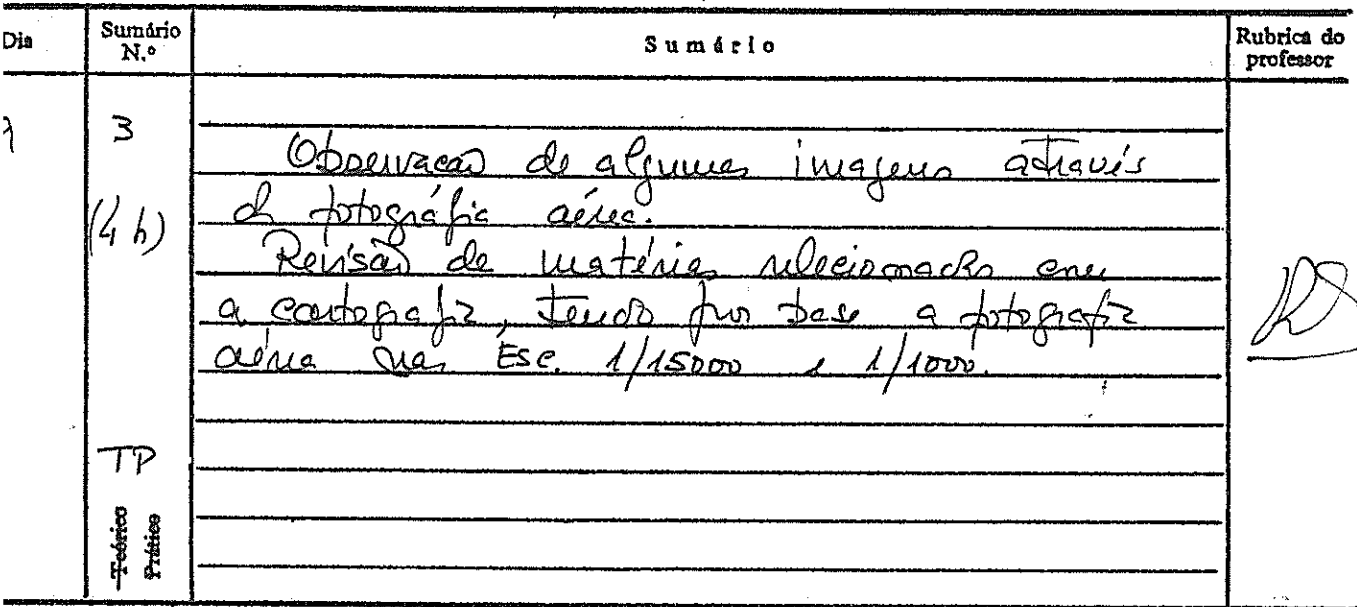 Dia
Sumário N.º
Sumário
Rubrica do professor
3
(4 h)
Observação de algumas imagens através
de fotografia aérea.
Revisão de matérias relacionadas com
a cartografia, tendo por base a fotografia
aérea nas Esc. 1/15000 e 1/1000.
TP
Teórico
Prático